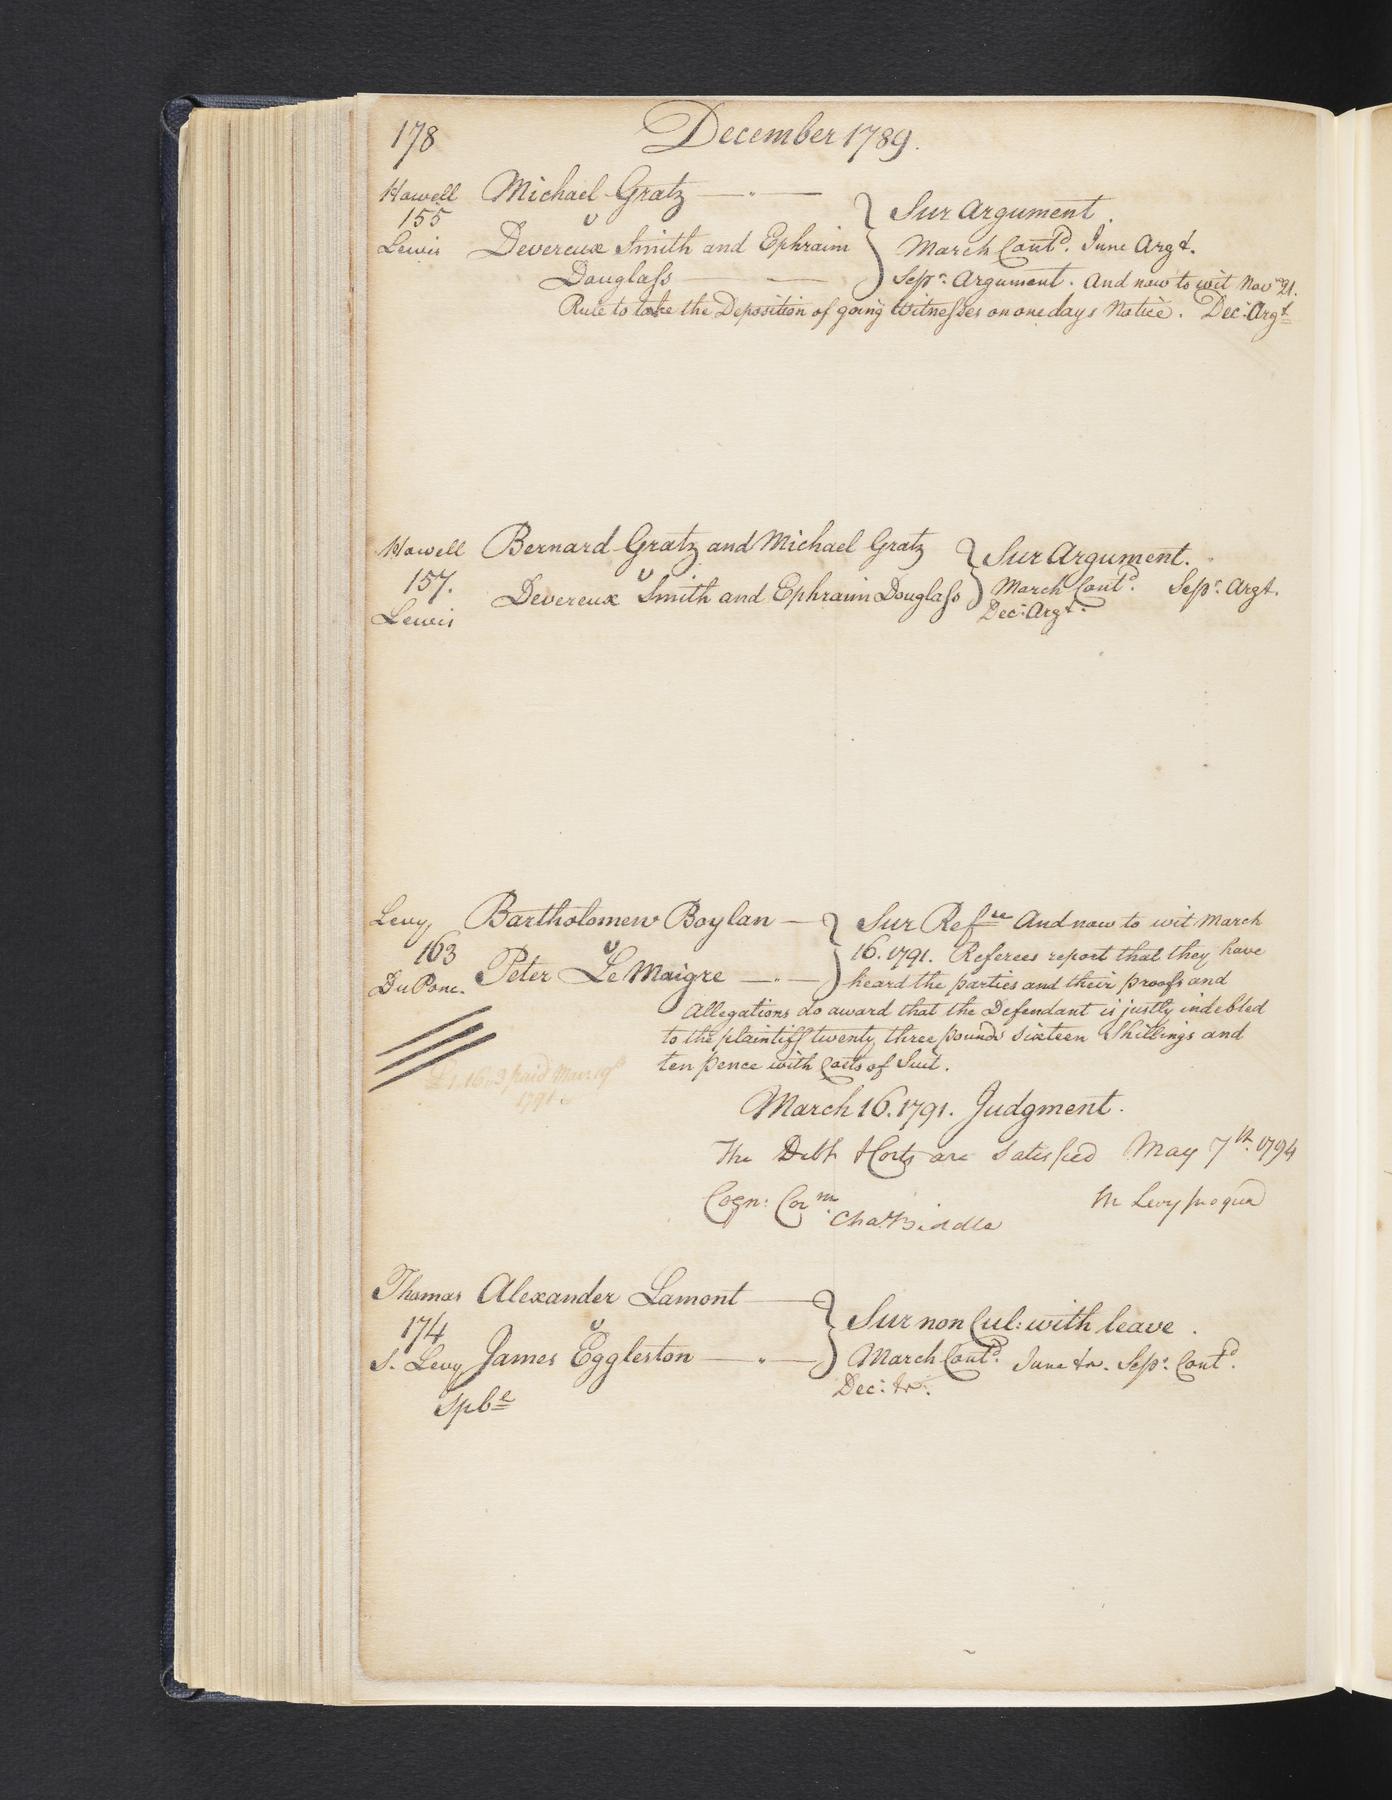 178 December 1789.
Howell Michael Gratz
155 v Sur Argument.
Lewis Devereux Smith and Ephraim March Cont^d. June Arg^t.
Douglass Sep^r. Argument. And now to wit Nov^r 21.
Rule to take the Deposition of going Witnesses on one days Notice. Dec^r: Arg^t
Howell Bernard Gratz and Michael Gratz Sur Argument.
157. v
Lewis Devereux Smith and Ephraim Douglass March Cont^d. Sep^r. Argt.
Dec^r: Arg^t.
Levy Bartholomew Boylan Sur Ref^ce And now to wit March
163 v 16. 1791. Referees report that they have
DuPonc. Peter Le Maigre heard the parties and their proofs and
Allegations do award that the Defendant is justly indebted
to the plaintiff twenty three pounds sixteen Shillings and
ten pence with Costs of Suit.
paid
1791
March 16. 1791. Judgment.
The Debt & Costs are Satisfied May 7^th. 1794
Cogn: Cor^m. Cha^s. Biddle M Levy pro quer
Thomas Alexander Lamont
174 v Sur non Cul: with leave.
S. Levy James Eggleston March Cont^d. June tr. Sep^r. Cont^d.
Dec^r: tr.
Spb^e